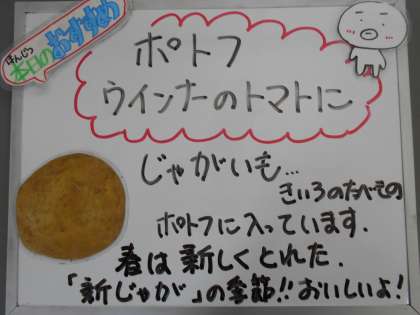 ほんじつ
本日のおすすめ
ポトフ
ウインナーのトマトに
じゃがいも…
きいろのたべもの
ポトフに入っています.
春は新しくとれた.
「新じゃが」の季節!!おいしいよ!